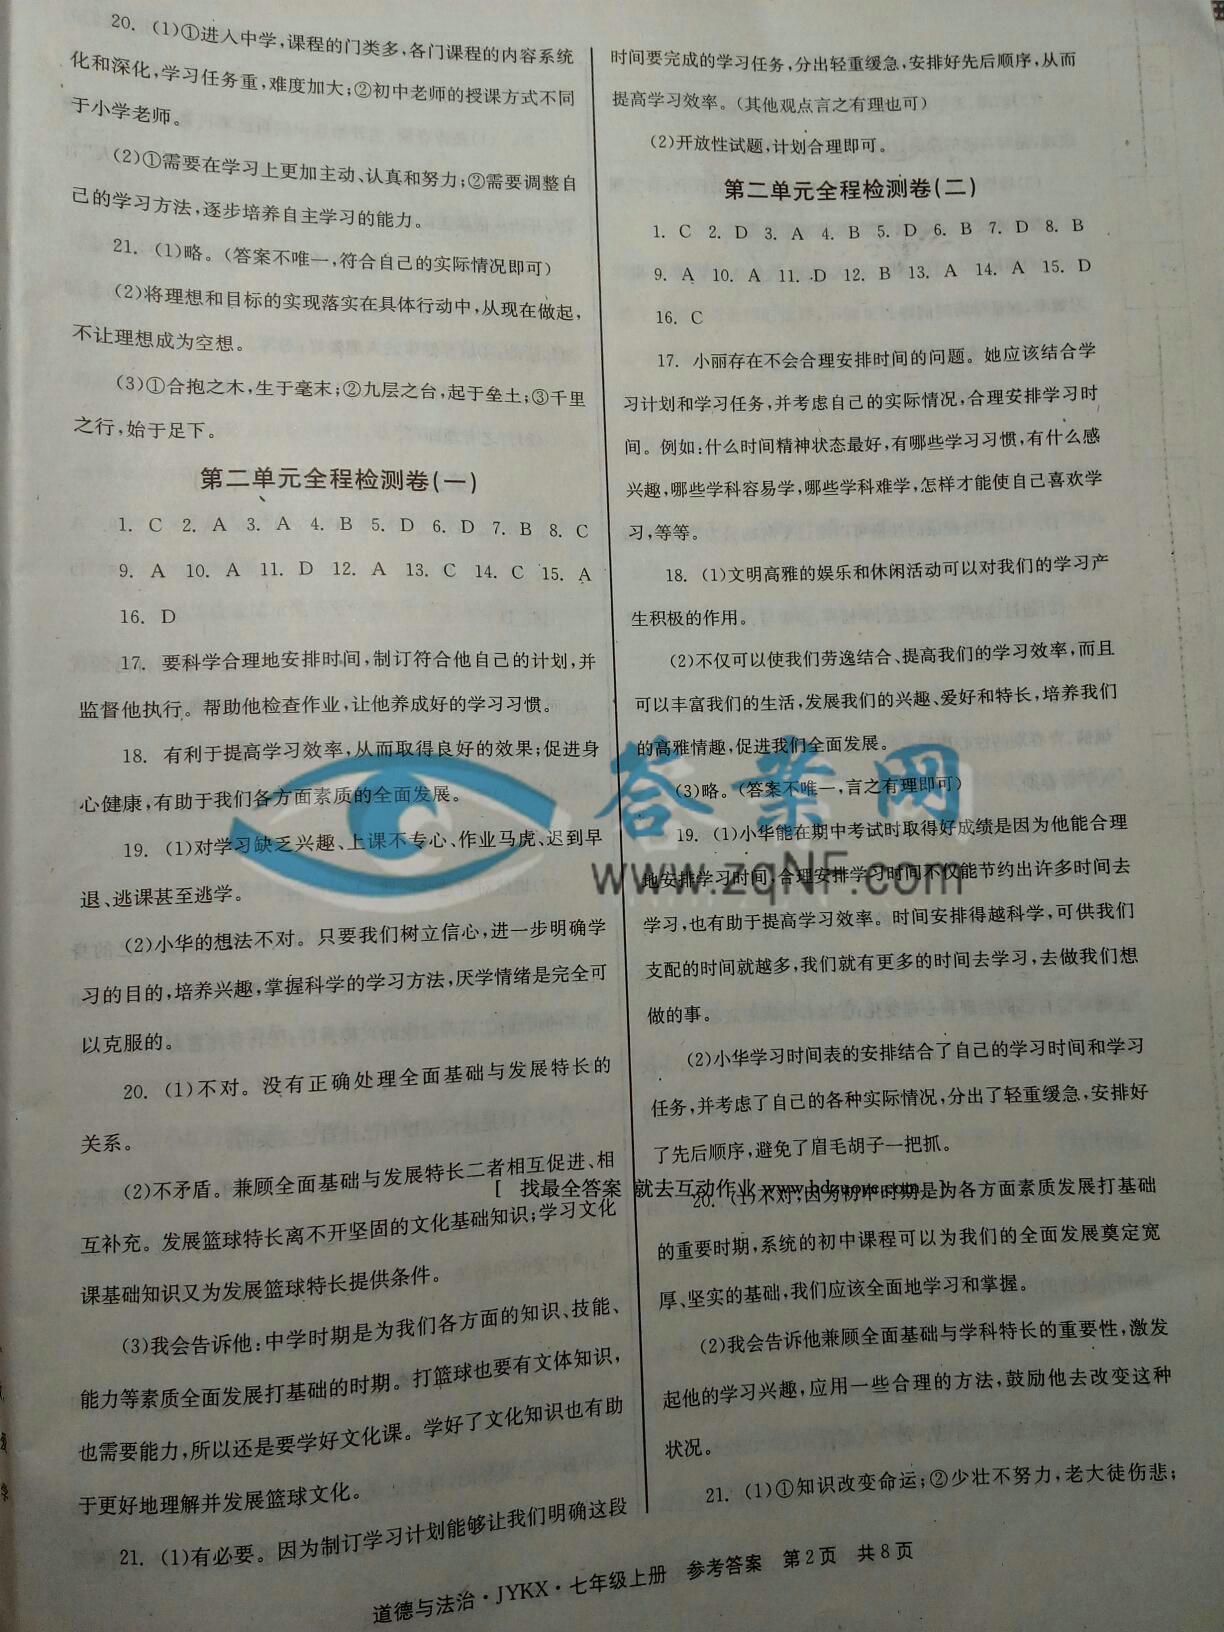 20. (1)①进入中学,课程的门类多,各门课程的内容系统
化和深化,学习任务重,难度加大;②初中老师的授课方式不同
于小学老师。
(2)①需要在学习上更加主动、认真和努力;②需要调整自
己的学习方法,逐步培养自主学习的能力。
21. (1)略。(答案不唯一,符合自己的实际情况即可)
(2)将理想和目标的实现落实在具体行动中,从现在做起,
不让理想成为空想。
(3)①合抱之木,生于毫末;②九层之台,起于垒土;③千里
之行,始于足下。
第二单元全程检测卷(一)
1. C 2. A 3. A 4. B 5. D 6. D 7. B 8. C
9. A 10. A 11. D 12. A 13. C 14. C 15. A
16. D
17. 要科学合理地安排时间,制订符合他自己的计划,并
监督他执行。帮助他检查作业,让他养成好的学习习惯。
18. 有利于提高学习效率,从而取得良好的效果;促进身
心健康,有助于我们各方面素质的全面发展。
19. (1)对学习缺乏兴趣、上课不专心、作业马虎、迟到早
退、逃课甚至逃学。
(2)小华的想法不对。只要我们树立信心,进一步明确学
习的目的,培养兴趣,掌握科学的学习方法,厌学情绪是完全可
以克服的。
20. (1)不对。没有正确处理全面基础与发展特长的
关系。
(2)不矛盾。兼顾全面基础与发展特长二者相互促进、相
互补充。发展篮球特长离不开坚固的文化基础知识;学习文化
课基础知识又为发展篮球特长提供条件。
(3)我会告诉他:中学时期是为我们各方面的知识、技能、
能力等素质全面发展打基础的时期。打篮球也要有文体知识,
也需要能力,所以还是要学好文化课。学好了文化知识也有助
于更好地理解并发展篮球文化。
21. (1)有必要。因为制订学习计划能够让我们明确这段
时间要完成的学习任务,分出轻重缓急,安排好先后顺序,从而
提高学习效率。(其他观点言之有理也可)
(2)开放性试题,计划合理即可。
第二单元全程检测卷(二)
1. C 2. D 3. A 4. B 5. D 6. B 7. D 8. B
9. A 10. A 11. D 12. B 13. A 14. A 15. D
16. C
17. 小丽存在不会合理安排时间的问题。她应该结合学
习计划和学习任务,并考虑自己的实际情况,合理安排学习时
间。例如:什么时间精神状态最好,有哪些学习习惯,有什么感
兴趣,哪些学科容易学,哪些学科难学,怎样才能使自己喜欢学
习,等等。
18. (1)文明高雅的娱乐和休闲活动可以对我们的学习产
生积极的作用。
(2)不仅可以使我们劳逸结合、提高我们的学习效率,而且
可以丰富我们的生活,发展我们的兴趣、爱好和特长,培养我们
的高雅情趣,促进我们全面发展。
(3)略。(答案不唯一,言之有理即可)
19. (1)小华能在期中考试时取得好成绩是因为他能合理
地安排学习时间,合理安排学习时间不仅能节约出许多时间去
学习,也有助于提高学习效率。时间安排得越科学,可供我们
支配的时间就越多,我们就有更多的时间去学习,去做我们想
做的事。
(2)小华学习时间表的安排结合了自己的学习时间和学习
任务,并考虑了自己的各种实际情况,分出了轻重缓急,安排好
了先后顺序,避免了眉毛胡子一把抓。
20. (1)不对,因为初中时期是为各方面素质发展打基础
的重要时期,系统的初中课程可以为我们的全面发展奠定宽
厚、坚实的基础,我们应该全面地学习和掌握。
(2)我会告诉他兼顾全面基础与学科特长的重要性,激发
起他的学习兴趣,应用一些合理的方法,鼓励他去改变这种
状况。
21. (1)①知识改变命运;②少壮不努力,老大徒伤悲;
道德与法治·JYKX·七年级上册 参考答案 第2页 共8页
答案网
www.zqNF.com
[ 找最全答案 就去互动作业